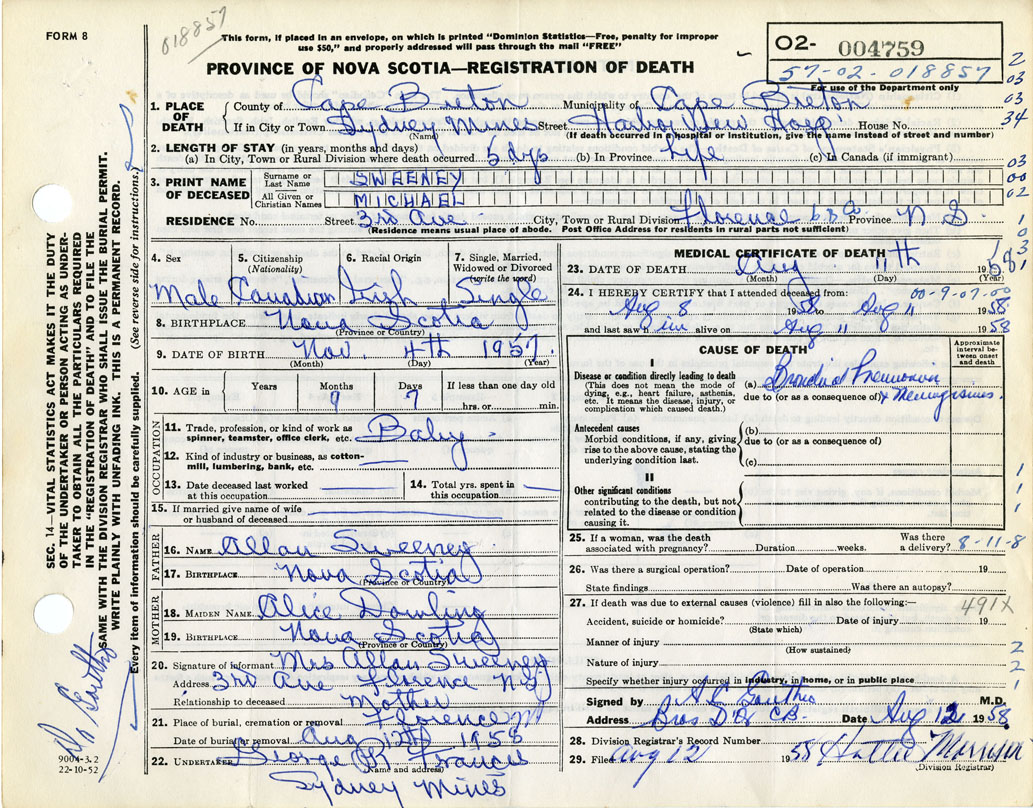 FORM 8
018857
This form, if placed in an envelope, on which is printed "Dominion Statistics—Free, penalty for improper
use $50," and properly addressed will pass through the mail "FREE"
O2- 004759
57-02-018857
For use of the Department only
PROVINCE OF NOVA SCOTIA—REGISTRATION OF DEATH
2
03
03
34
03
00
02
1. PLACE OF DEATH
County of Cape Breton Municipality of Cape Breton
If in City or Town Sydney Mines Street Harbor View Hosp House No.
(Name) (If death occurred in a hospital or institution, give the name instead of street and number)
2. LENGTH OF STAY (in years, months and days)
(a) In City, Town or Rural Division where death occurred 5 dys (b) In Province Life (c) In Canada (if immigrant)
3. PRINT NAME OF DECEASED
Surname or Last Name SWEENEY
All Given or Christian Names MICHAEL
RESIDENCE No. Street 3rd Ave City, Town or Rural Division Florence C.B. Co Province N S
(Residence means usual place of abode. Post Office Address for residents in rural parts not sufficient)
4. Sex Male
5. Citizenship (Nationality) Canadian
6. Racial Origin Irish
7. Single, Married, Widowed or Divorced (write the word) Single
8. BIRTHPLACE Nova Scotia
(Province or Country)
9. DATE OF BIRTH Nov. 4th 1957
(Month) (Day) (Year)
10. AGE in Years Months 9 Days 7 If less than one day old hrs. or min.
OCCUPATION
11. Trade, profession, or kind of work as spinner, teamster, office clerk, etc. Baby
12. Kind of industry or business, as cotton-mill, lumbering, bank, etc.
13. Date deceased last worked at this occupation
14. Total yrs. spent in this occupation
15. If married give name of wife or husband of deceased
FATHER
16. NAME Allan Sweeney
17. BIRTHPLACE Nova Scotia
(Province or Country)
MOTHER
18. MAIDEN NAME Alice Dowling
19. BIRTHPLACE Nova Scotia
(Province or Country)
20. Signature of informant Mrs Allan Sweeney
Address 3rd Ave Florence N.S
Relationship to deceased Mother
21. Place of burial, cremation or removal Florence
Date of burial or removal Aug 12th 1958
22. UNDERTAKER George R Francis
(Name and address)
Sydney Mines
MEDICAL CERTIFICATE OF DEATH
23. DATE OF DEATH Aug 11th 1958
(Month) (Day) (Year)
24. I HEREBY CERTIFY that I attended deceased from: 00-9-07-00
Aug 8 1958 to Aug 11 1958
and last saw him alive on Aug 11 1958
CAUSE OF DEATH
Approximate interval between onset and death
I
Disease or condition directly leading to death
(This does not mean the mode of dying, e.g., heart failure, asthenia, etc. It means the disease, injury, or complication which caused death.)
(a) Bronchial Pneumonia
due to (or as a consequence of) & Meningismus.
Antecedent causes
Morbid conditions, if any, giving rise to the above cause, stating the underlying condition last.
(b)
due to (or as a consequence of)
(c)
II
Other significant conditions
contributing to the death, but not related to the disease or condition causing it.
25. If a woman, was the death associated with pregnancy? Duration weeks. Was there a delivery? 8-11-8
26. Was there a surgical operation? Date of operation 19
State findings Was there an autopsy?
27. If death was due to external causes (violence) fill in also the following:— 491X
Accident, suicide or homicide? Date of injury 19
(State which)
Manner of injury
(How sustained)
Nature of injury
Specify whether injury occurred in industry, in home, or in public place
Signed by M.D.
Address Bras D'Or C.B. Date Aug 12 1958
28. Division Registrar's Record Number
29. Filed Aug 12 1958
(Division Registrar)
SEC. 14—VITAL STATISTICS ACT MAKES IT THE DUTY
OF THE UNDERTAKER OR PERSON ACTING AS UNDER-
TAKER TO OBTAIN ALL THE PARTICULARS REQUIRED
IN THE "REGISTRATION OF DEATH" AND TO FILE THE
SAME WITH THE DIVISION REGISTRAR WHO SHALL ISSUE THE BURIAL PERMIT.
WRITE PLAINLY WITH UNFADING INK. THIS IS A PERMANENT RECORD.
Every item of information should be carefully supplied. (See reverse side for instructions.)
9004-3.2
22-10-52